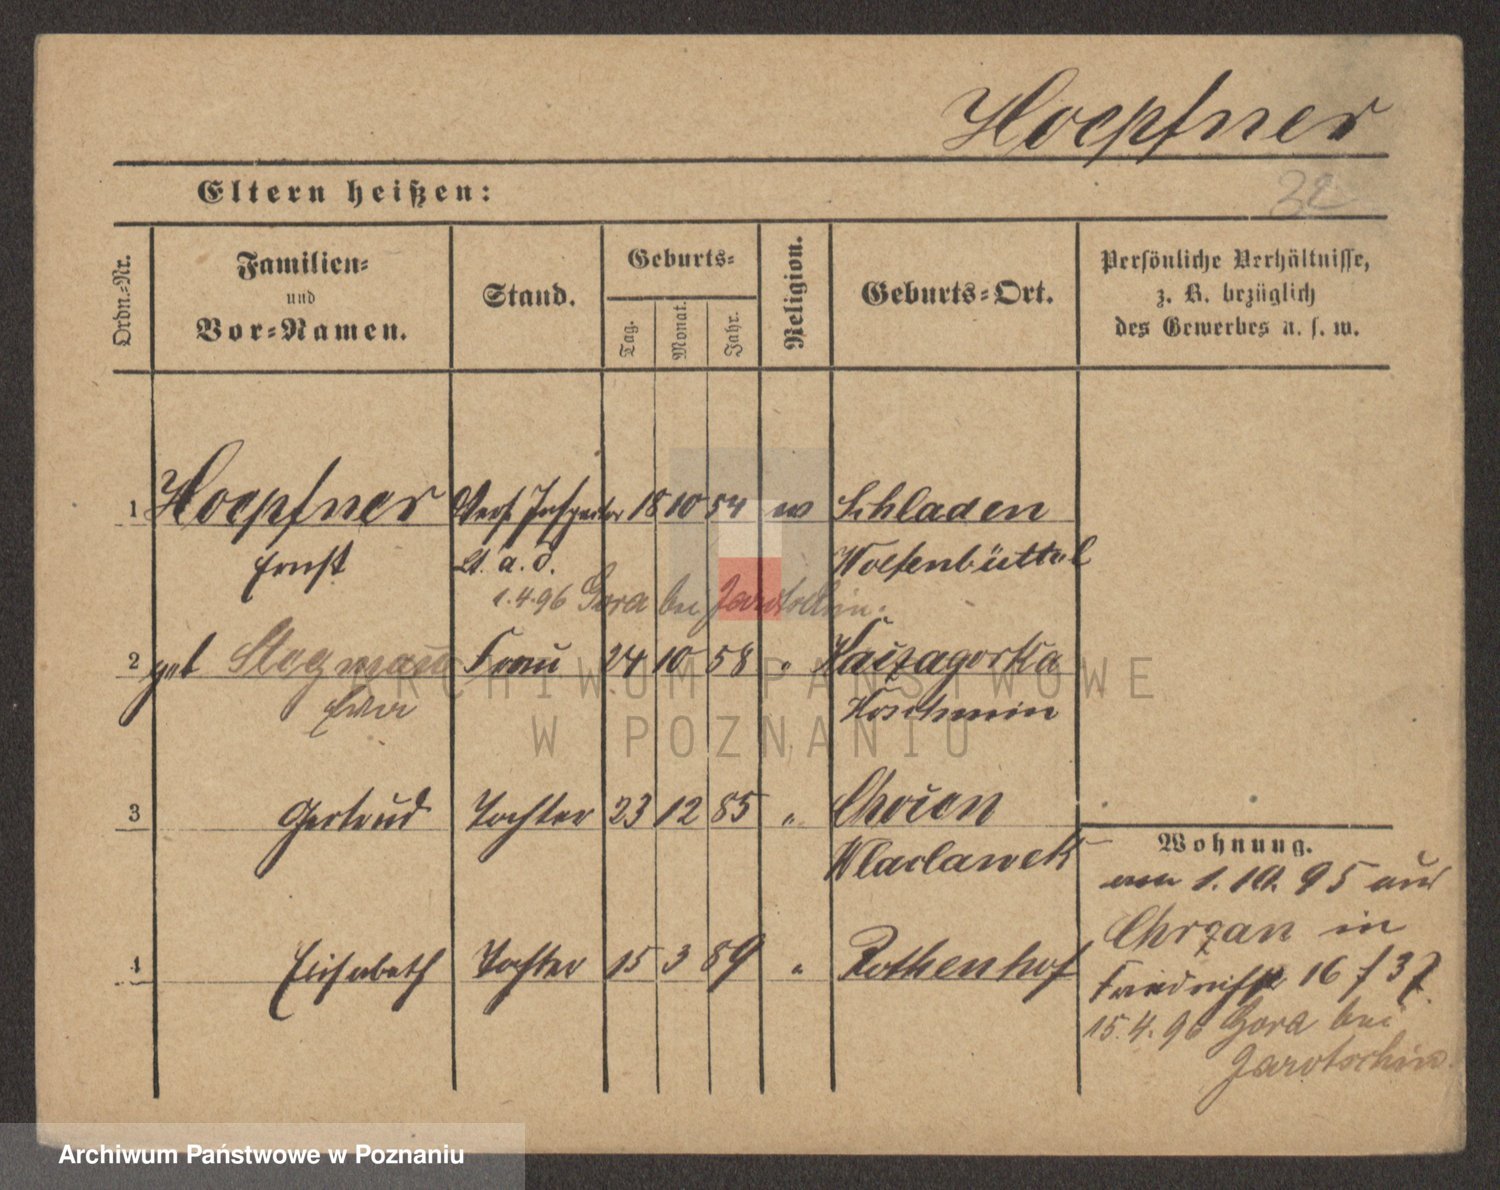 Hoepfner
32
Eltern heißen:
Ordn.-Nr.
Familien-
und
Vor-Namen.
Stand.
Geburts-
Tag.
Monat.
Jahr.
Religion.
Geburts-Ort.
Persönliche Verhältnisse,
z. B. bezüglich
des Gewerbes u. s. w.
1 Hoepfner Vers. Inspector 18 10 54 ev Schladen
Ernst Lt. a. D. Wolfenbüttel
1.4.96 Gora bei Jarotschin.
2 geb Stegmann Frau 24 10 58 " Kaizagorka
Koschmin
3 Gertrud Tochter 23 12 85 " Choien
Wlaclawek
4 Elisabeth Tochter 15 3 89 " Rothenhof
Wohnung.
am 1.10.95 aus
Chrzan in
Friedrichstr 16 / 37
15.4.96 Gora bei
Jarotschin.
ARCHIWUM PAŃSTWOWE
W POZNANIU
Archiwum Państwowe w Poznaniu